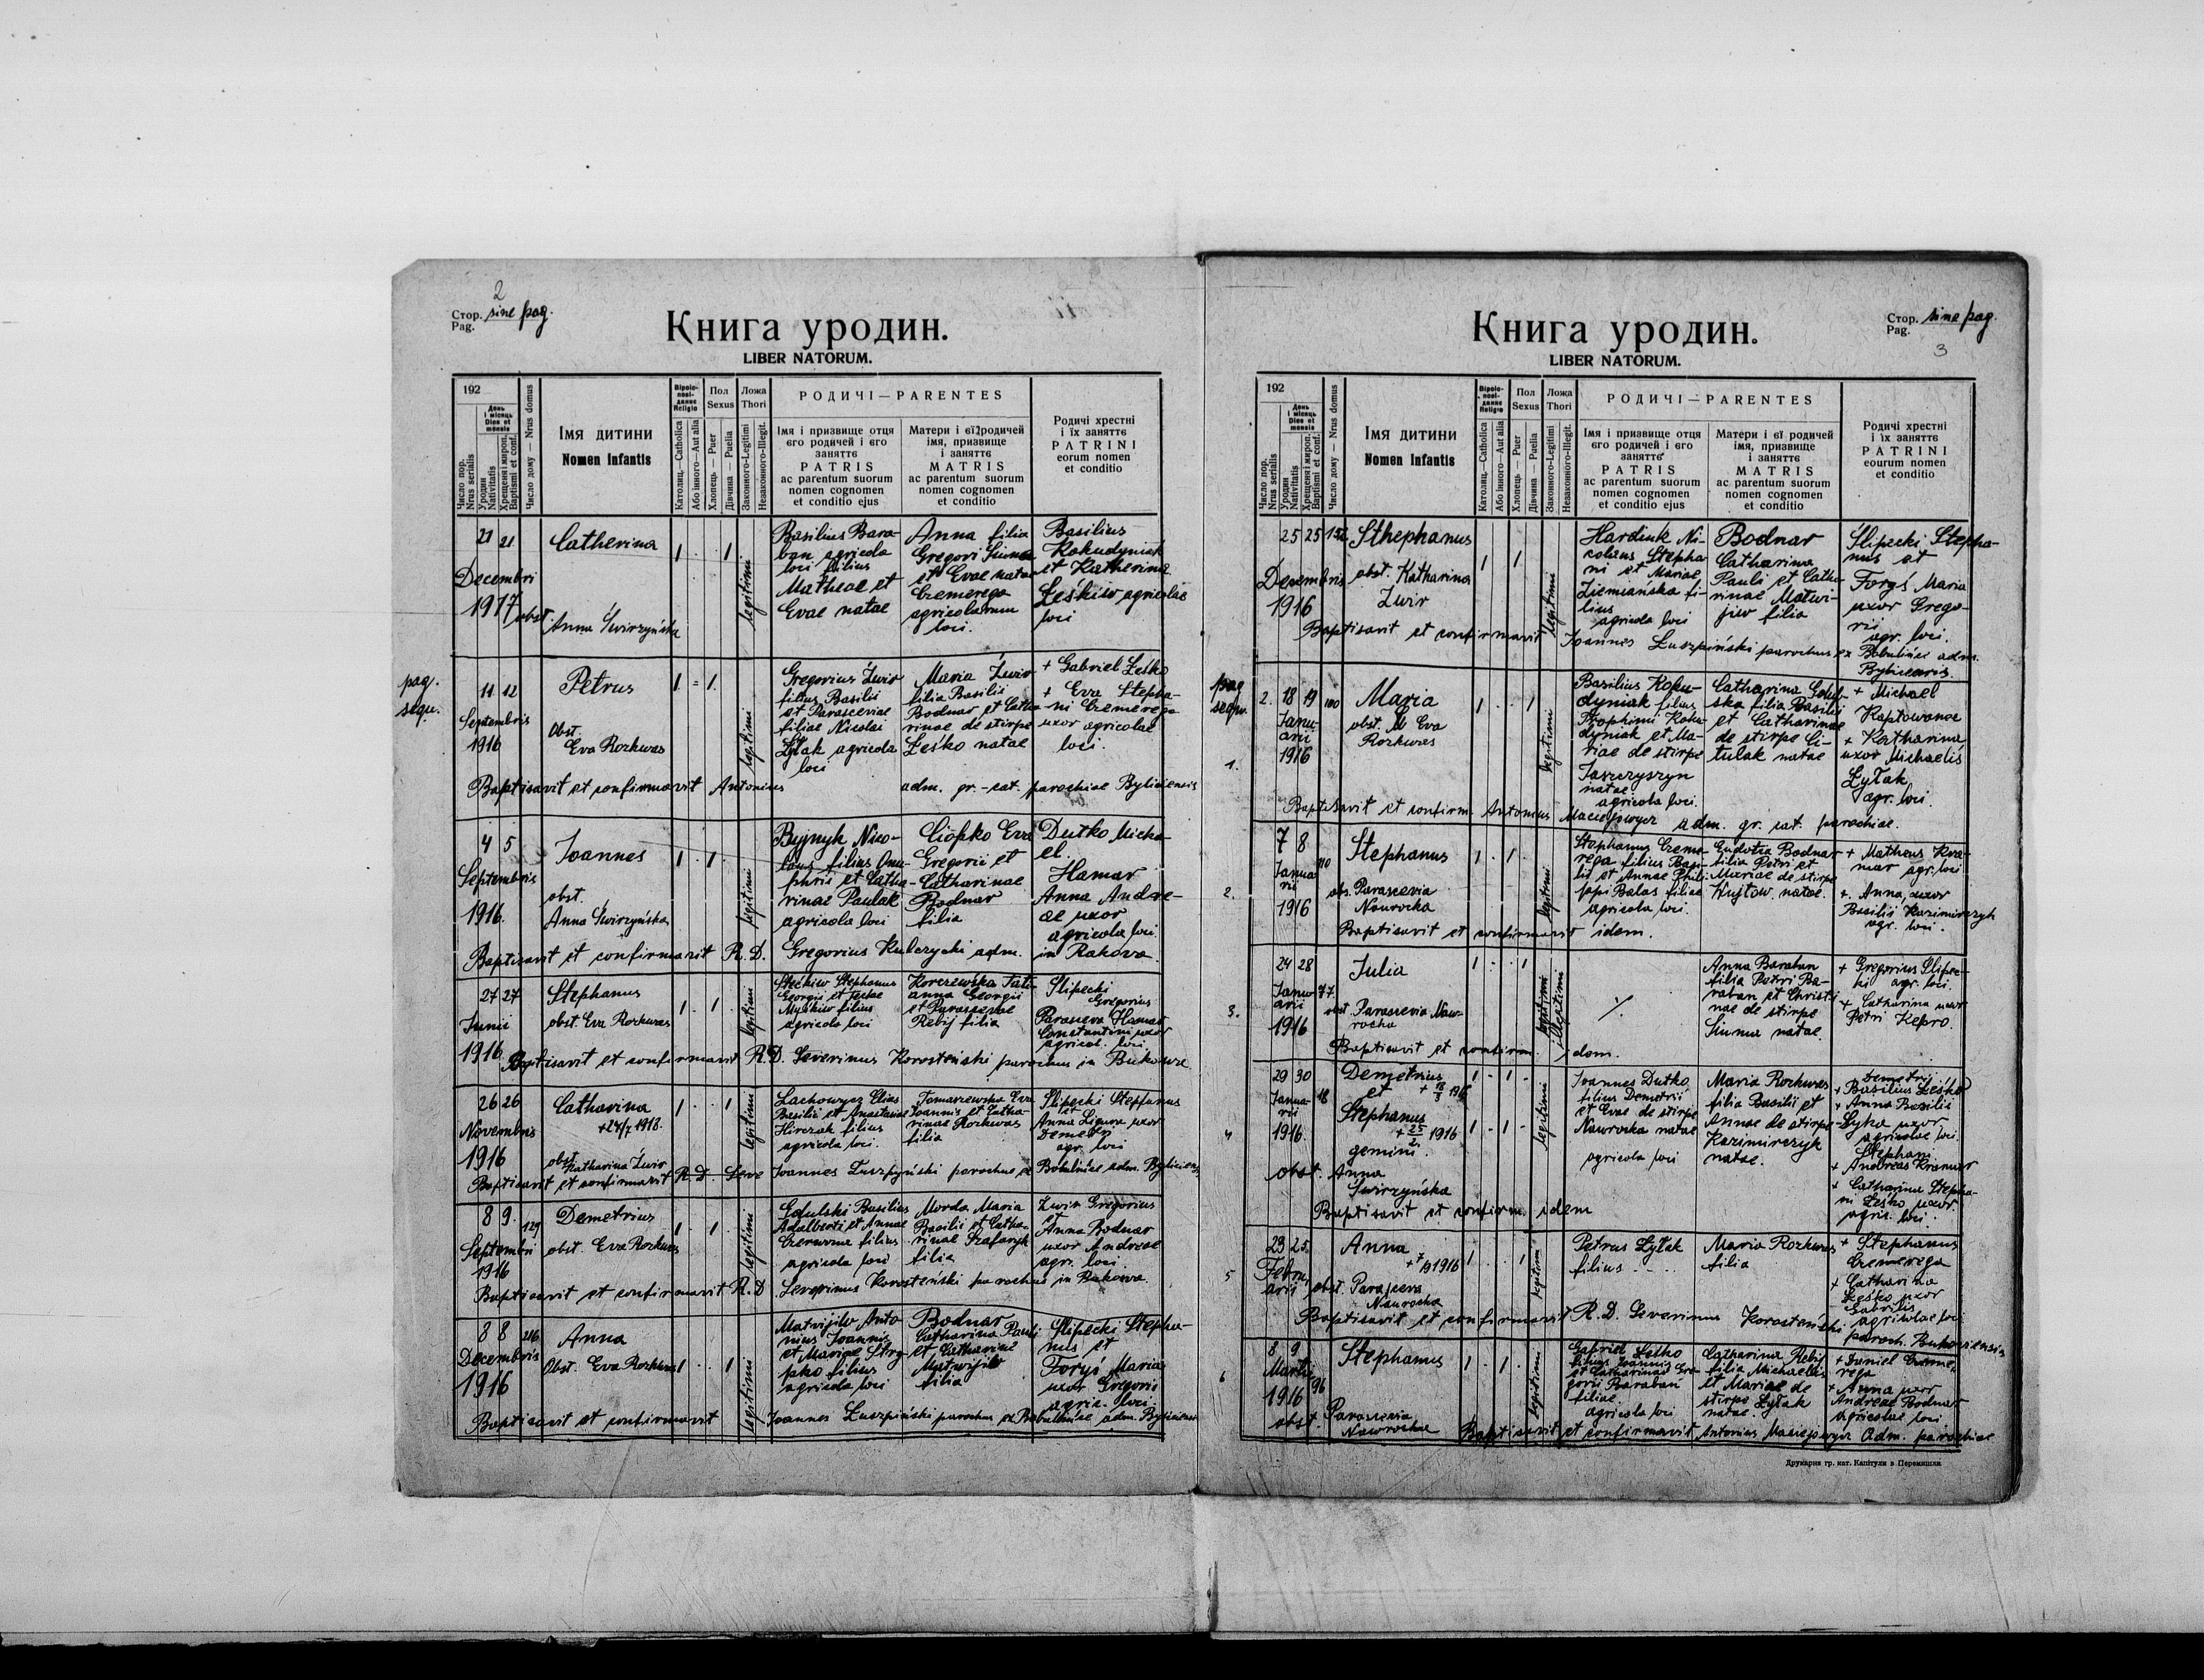 2
Стор. sine pag.
Pag.
Книга уродин.
LIBER NATORUM.
192
День і місяць
Dies et mensis
Число пор.
Nrus serialis
Уродин
Nativitatis
Хрещеня і миров.
Baptismi et conf.
Число дому — Nrus domus
Імя дитини
Nomen Infantis
Віроісповідание
Religio
Католиц.—Catholica
Або інного—Aut alia
Пол
Sexus
Хлопець — Puer
Дівчина — Puella
Ложа
Thori
Законного-Legitimi
Незаконного-Illegit.
РОДИЧІ—PARENTES
Імя і призвище отця
єго родичей і єго
занятє
PATRIS
ac parentum suorum
nomen cognomen
et conditio ejus
Матери і єї родичей
імя, призвище
і занятє
MATRIS
ac parentum suorum
nomen cognomen
et conditio
Родичі хрестні
і їх занятє
PATRINI
eorum nomen
et conditio
21 21
Decembri
1917
Catherina
obst.
Anna Świrzyńska
1 . . 1.
legitimi
Basilius Bara-
ban agricola
loci filius
Matheae et
Evae natae
Anna filia
Gregori
et Evae natae
Czemerega
agricolarum
loci.
Basilius
Kokudyniak
et Katherina
Leśkiw agricolae
loci
pag.
sequ.
11 12
Septembris
1916
Petrus
Obst.
Eva Rozkwas
legitimi
Gregorius Żwir
filius Basilii
et Parasceviae
filiae Nicolai
Łytak agricola
loci
Maria Żwir
filia Basilii
Bodnar et Catha-
rinae de stirpe
Leśko natae
+ Gabriel Leśko
+ Eva Stepha-
ni Czemerega
uxor agricolae
loci.
Baptisavit et confirmavit Antonius adm. gr.-cat. parochiae Byliciensis
4 5
Septembris
1916.
Joannes
obst.
Anna Świrzyńska
1 . 1.
legitimi
Bujnyk Nico-
laus filius Onu-
phrii et Catha-
rinae Pawlak
agricola loci
Ciopko Eva
Gregorii et
Catharinae
Bodnar
filia
Dutko Micha-
el.
Hamar
Anna Andre-
ae uxor
agricola loci.
Baptisavit et confirmavit R. D. Gregorius Kulczycki adm. in Rakova.
27 27
Junii
1916
Stephanus
obst. Eva Rozkwas
1 . 1.
legitimi
Steckiw Stephanus
Georgii et Teclae
Myśkiw filius
agricola loci
Korczewska Tati-
anna Georgii
et Parascevae
Rebij filia
Slipecki
Gregorius
Parasceva Hamar
Constantini uxor
agricol. loci.
Baptisavit et confirmavit R.D. Severinus Korosteński parochus in Bukowa
26 26
Novembris
1916
Catharina
+24/7 1918.
obst.
Katharina Żwir
1 . . 1
legitimi
Lachowycz Elias
Basilii et Anastasiae
Hirczak filius
agricola loci.
Tomaszewska Eva
Joannis et Catha-
rinae Rozkwas
filia
Slipecki Stephanus
et
Anna Ligura uxor
Demetri
agr. loci
Baptisavit et confirmavit R.D. Joannes Luszpyński parochus ex Babulińce adm. Byliciens.
8 9.
129
Septembri
1916
Demetrius
obst. Eva Rozkwas
1 . 1.
legitimi
Gdulski Basilius
Adalberti et Annae
Czerwona filius
agricola loci
Morda Maria
Basilii et Catha-
rinae Szafaryk
filia
Żwir Gregorius
et
Anna Bodnar
uxor Andreae
agr. loci.
Baptisavit et confirmavit R.D Severinus Korosteński parochus in Bukowa.
8 8
216
Decembris
1916
Anna
Obst. Eva Rozkwas
1 . . 1
legitimi
Matwijiw Anto
nius Joannis
et Mariae Stry-
pko filius
agricola loci
Bodnar
Catharina Pauli
et Catharinae
Matwijiw
filia
Slipecki Stepha-
nus et
Foryś Maria
uxor Gregorii
agric. loci.
Baptisavit et confirmavit Joannes Luszpiński parochus ex Babulińce adm. Byliciens
Книга уродин.
LIBER NATORUM.
Стор. sine pag.
Pag.
3
192
День і місяць
Dies et mensis
Число пор.
Nrus serialis
Уродин
Nativitatis
Хрещеня і миров.
Baptismi et conf.
Число дому — Nrus domus
Імя дитини
Nomen Infantis
Віроісповідание
Religio
Католиц.—Catholica
Або інного—Aut alia
Пол
Sexus
Хлопець — Puer
Дівчина — Puella
Ложа
Thori
Законного-Legitimi
Незаконного-Illegit.
РОДИЧІ—PARENTES
Імя і призвище отця
єго родичей і єго
занятє
PATRIS
ac parentum suorum
nomen cognomen
et conditio ejus
Матери і єї родичей
імя, призвище
і занятє
MATRIS
ac parentum suorum
nomen cognomen
et conditio
Родичі хрестні
і їх занятє
PATRINI
eourum nomen
et conditio
25 25
Decembris
1916
Sthephanus
obst. Katharina
Żwir
1 1
legitimi
Hardiuk Ni-
colaus Stepha
ni et Mariae
Ziemiańska fi-
lius
agricola loci
Bodnar
Catharina
Pauli et Catha-
rinae Matwi-
jiw filia
Slipecki Stepha-
nus et
Foryś Maria
uxor Grego-
rii
agr. loci.
Baptisavit et confirmavit Joannes Luszpiński parochus ex Babulińce adm.
Byliciensis.
pag
sequ.
1.
2. 18 19 100
Janu-
arii
1916
Maria
obst. Eva
Rozkwas
1 . . 1
legitimi
Basilius Koku-
dyniak filius
Trophimi Koku-
dyniak et Ma-
riae de stirpe
Jaszczyszyn
natae
agricola loci.
Catharina Gdul-
ska filia Basilii
et Catharinae
de stirpe Ci-
tulak natae
+ Michael
Kaptowanec
+ Katharina
uxor Michaelis
Łytak
agr. loci.
Baptisavit et confirm. Antonius Maciejowycz adm. gr. cat. parochiae.
2.
7 8
110
Janua
rii
1916
Stephanus
obs. Parascevia
Nawrocka
1 . 1.
legitimi
Stephanus Czeme-
rega filius Basi-
lii et Annae Phili-
ppi Balas filiae
agricola loci.
Eudotia Bodnar
filia Petri et
Mariae de stirpe
Wujtow. natae.
+ Matheus Kra-
mar agr. loci
+. Anna, uxor
Basilii Kazimirczyk
agr. loci.
Baptisavit et confirmavit idem.
3.
24 28
77.
Janu-
arii
1916
Julia
obst. Parascevia Naw-
rocka
1 . . 1
legitimi
illegitimi
./.
Anna Baraban
filia Petri Ba-
raban et Christi
nae de stirpe
natae.
+ Gregorius Slipec-
ki agr. loci.
+ Catharina uxor
Petri Kepro.
Baptisavit et confirm. idem.
4
29 30
18
Janua-
rii
1916.
Demetrius
et
Stephanus
+ 25 1916
gemini.
obst. Anna
Świrzyńska
1 . 1 .
1 . 1 .
legitimi
Joannes Dutko
filius Demetrii
et Evae de stirpe
Nawrocka natae
agricola loci
Maria Rozkwas
filia Basilii et
Annae de stirpe
Kazimirczyk
natae.
Demetrii
+ Basilius Leśko
+ Anna Basilii
Łyko uxor
agricolae loci
Stephani
+ Andreas Kramar
+ Catharina Stepha-
ni Leśko uxor.
agric. loci.
Baptisavit et confirm. idem
5
23 25.
Febru
arii
Anna
1916
obst. Parasceva
Nawrocka
1 . . 1
legitimi
Petrus Łytak
filius - - .
Maria Rozkwas
filia
+ Stephanus
Czemerega
+ Catharina
Leśko uxor
Gabrilis
agricolae loci
Baptisavit et confirmavit R. D. Severinus Korosteński paroch. Bukoviensis
6
8 9
96
Martii
1916
obst.
Stephanus
Parascevia
Nawrockae
1 . 1 .
legitimi
Gabriel Leśko
filius Joannis
et Catharinae Gre-
gorii Baraban
filiae
agricola loci
Catharina Rebij
filia Michaelis
et Mariae de
stirpe Łytak
natae.
+ Daniel Czeme-
rega
+ Anna uxor
Andreae Bodnar
agricolae loci
Baptisavit et confirmavit Antonius Maciejowycz Adm. parochiae
Друкарня гр. кат. Капітули в Перемишли